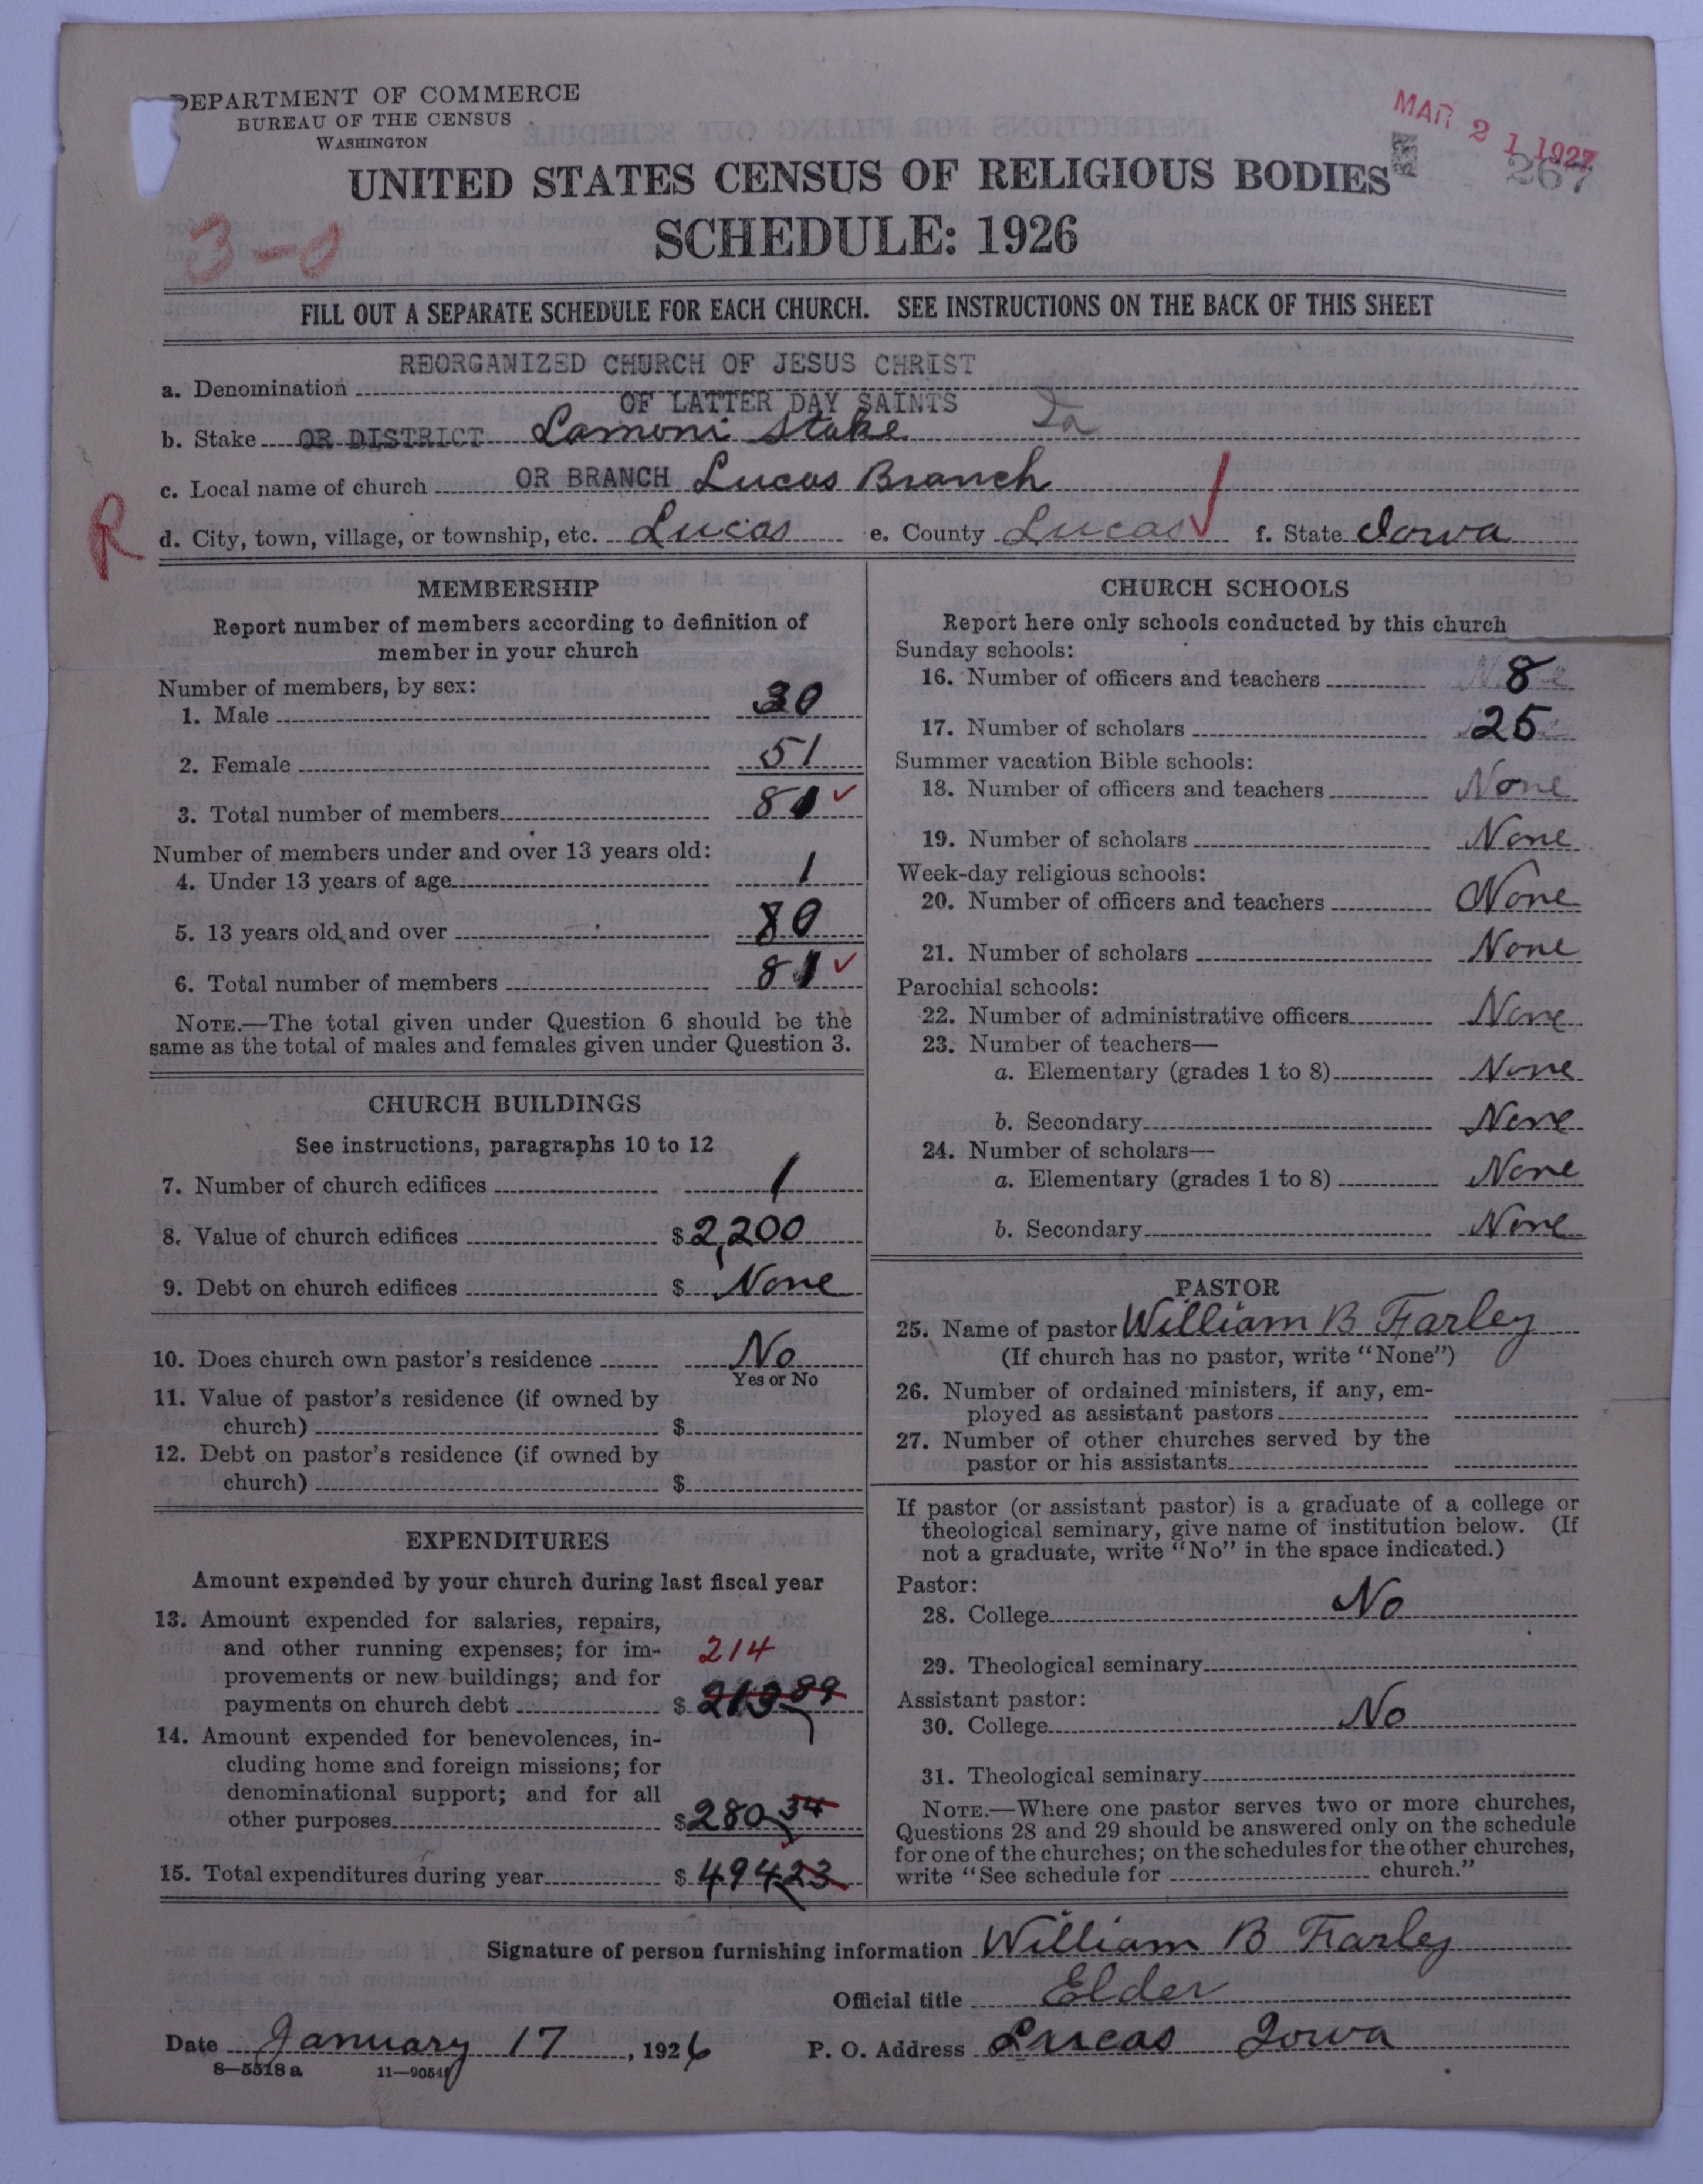 DEPARTMENT OF COMMERCE
BUREAU OF THE CENSUS
WASHINGTON
MAR 21 1927
267
UNITED STATES CENSUS OF RELIGIOUS BODIES
SCHEDULE: 1926
3-0
FILL OUT A SEPARATE SCHEDULE FOR EACH CHURCH. SEE INSTRUCTIONS ON THE BACK OF THIS SHEET
REORGANIZED CHURCH OF JESUS CHRIST
a. Denomination
OF LATTER DAY SAINTS
b. Stake OR DISTRICT Lamoni Stake Ia
c. Local name of church OR BRANCH Lucas Branch
R
d. City, town, village, or township, etc. Lucas e. County Lucas ✓ f. State Iowa
MEMBERSHIP
Report number of members according to definition of
member in your church
Number of members, by sex:
1. Male 30
2. Female 51
3. Total number of members 81 ✓
Number of members under and over 13 years old:
4. Under 13 years of age 1
5. 13 years old and over 80
6. Total number of members 81 ✓
NOTE.—The total given under Question 6 should be the
same as the total of males and females given under Question 3.
CHURCH BUILDINGS
See instructions, paragraphs 10 to 12
7. Number of church edifices 1
8. Value of church edifices $ 2,200
9. Debt on church edifices $ None
10. Does church own pastor's residence No
Yes or No
11. Value of pastor's residence (if owned by
church) $
12. Debt on pastor's residence (if owned by
church) $
EXPENDITURES
Amount expended by your church during last fiscal year
13. Amount expended for salaries, repairs,
and other running expenses; for im- 214
provements or new buildings; and for
payments on church debt $ 213 89
14. Amount expended for benevolences, in-
cluding home and foreign missions; for
denominational support; and for all
other purposes $ 280 34
15. Total expenditures during year $ 494 23
CHURCH SCHOOLS
Report here only schools conducted by this church
Sunday schools:
16. Number of officers and teachers 8
17. Number of scholars 25
Summer vacation Bible schools:
18. Number of officers and teachers None
19. Number of scholars None
Week-day religious schools:
20. Number of officers and teachers None
21. Number of scholars None
Parochial schools:
22. Number of administrative officers None
23. Number of teachers—
a. Elementary (grades 1 to 8) None
b. Secondary None
24. Number of scholars—
a. Elementary (grades 1 to 8) None
b. Secondary None
PASTOR
25. Name of pastor William B Farley
(If church has no pastor, write "None")
26. Number of ordained ministers, if any, em-
ployed as assistant pastors
27. Number of other churches served by the
pastor or his assistants
If pastor (or assistant pastor) is a graduate of a college or
theological seminary, give name of institution below. (If
not a graduate, write "No" in the space indicated.)
Pastor:
28. College No
29. Theological seminary
Assistant pastor:
30. College No
31. Theological seminary
NOTE.—Where one pastor serves two or more churches,
Questions 28 and 29 should be answered only on the schedule
for one of the churches; on the schedules for the other churches,
write "See schedule for church."
Signature of person furnishing information William B Farley
Official title Elder
Date January 17, 1926 P. O. Address Lucas Iowa
8—5518 a 11—9054